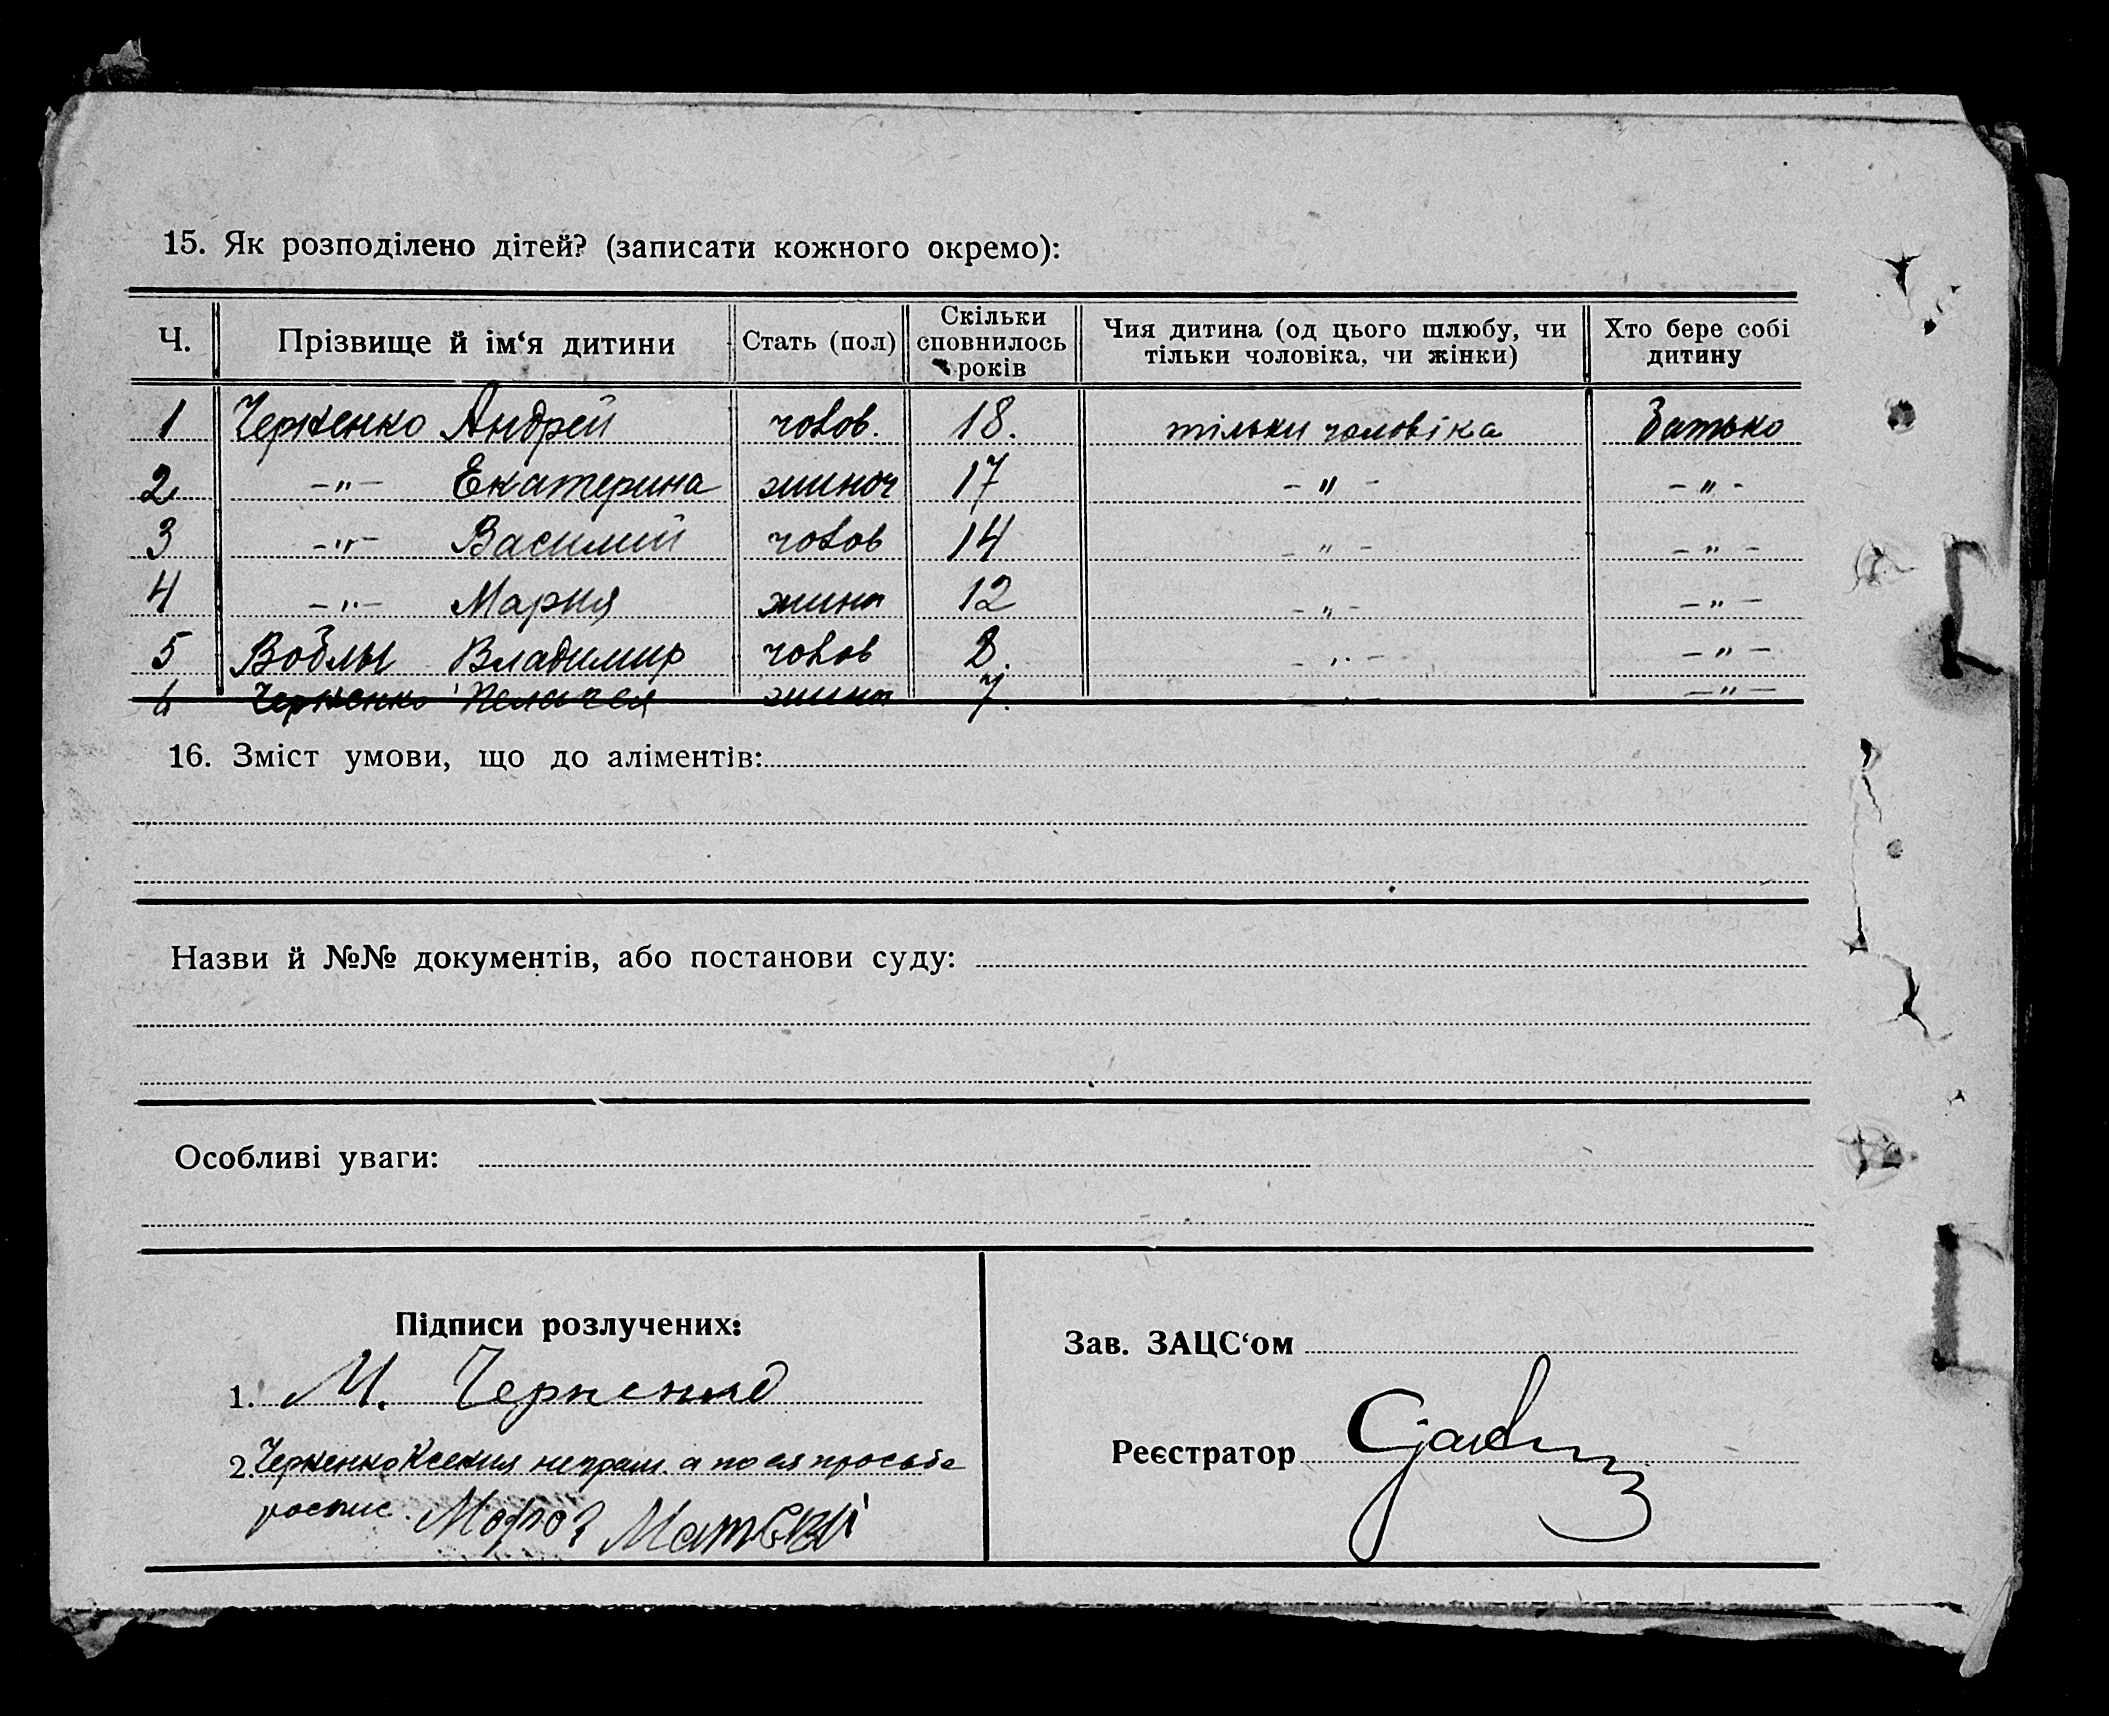 15. Як розподілено дітей? (записати кожного окремо):
Ч. Прізвище й ім‘я дитини Стать (пол) Скільки сповнилось років Чия дитина (од цього шлюбу, чи тільки чоловіка, чи жінки) Хто бере собі дитину
1 Черненко Андрей чолов. 18. тільки чоловіка Батько
2 -"- Екатерина жиноч 17 -"- -"-
3 -"- Василий чолов 14 -"- -"-
4 -"- Мария жин 12 -"- -"-
5 Воблы Владимир чолов 8. -"- -"-
6 Черненко Пелагея жин 7. -"-
16. Зміст умови, що до аліментів:
Назви й №№ документів, або постанови суду:
Особливі уваги:
Підписи розлучених:
1. И. Черненко
2. Черненко Ксения неграм. а по ея просьбе
роспис. Мороз Матвій
Зав. ЗАЦС‘ом
Реєстратор